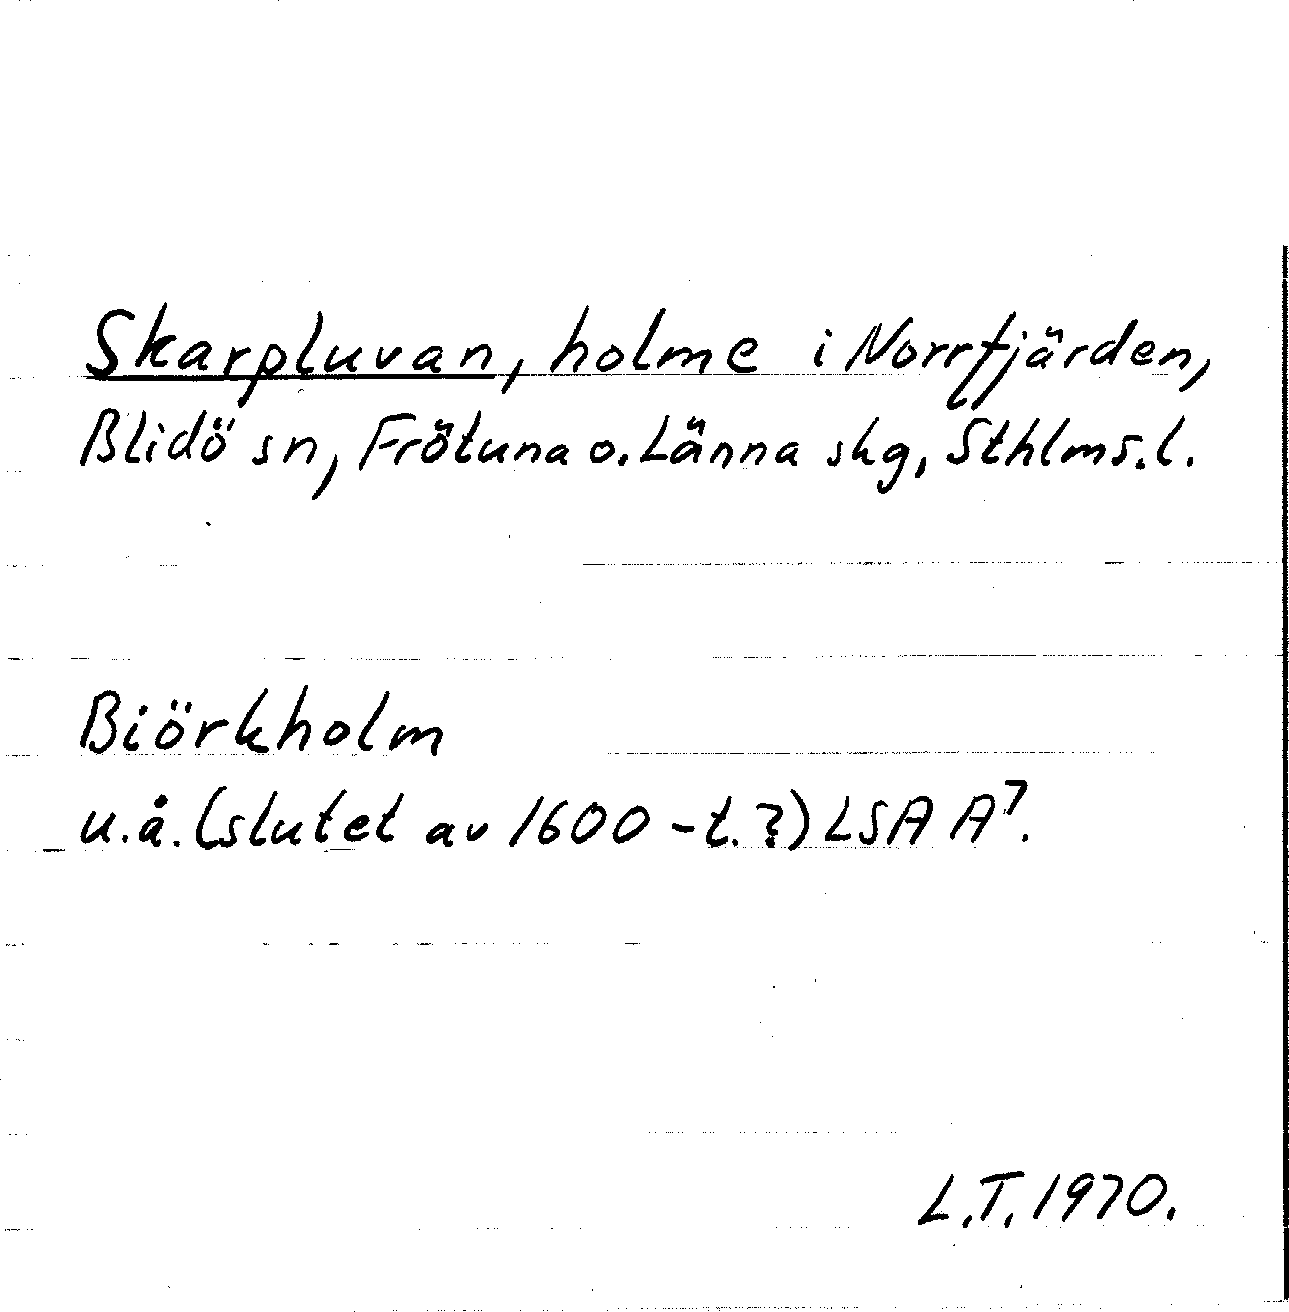 Skarpluvan, holme i Norrfjärden,
Blidö sn, Frötuna o. Länna skg, Sthlms. l.
Biörkholm
u.å. (slutet av 1600-t.?) LSA A⁷.
L.T. 1970.